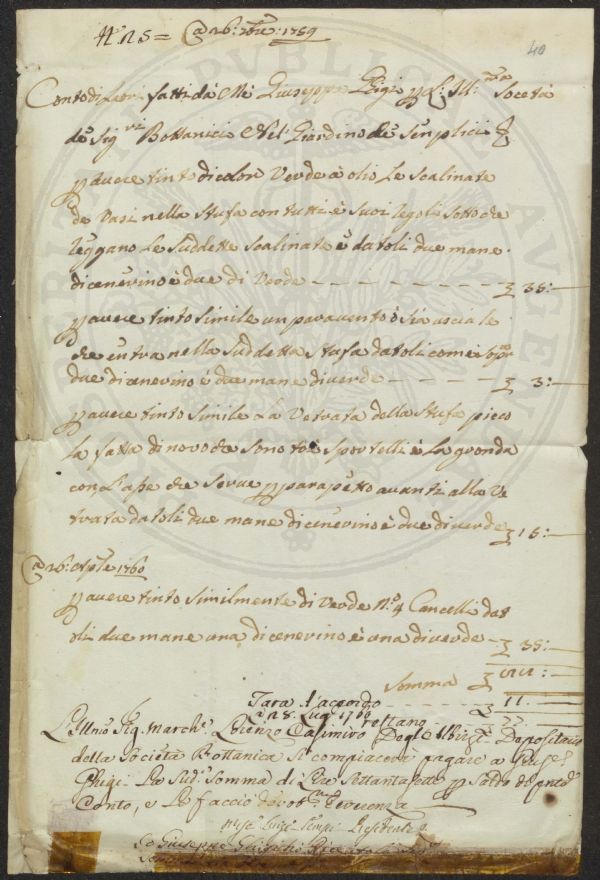 N.° 25 = @ 26: 7bre: 1759
40
Conto di Lavori fatti da Me Giuseppe Ghigi p L: Ill:ma Società
de Sig:ri Bottanici Nel: Giardino de Senplici
p avere tinto di color Verde à olio Le Scalinate
de Vasi nella Stufa con tutti è Suoi Regoli Sotto che
Reggano Le Suddette Scalinate è datoli due mane
di cenerino è due di Verde - - - - £ 35: —
p avere tinto Simile un paravento ò Sia usciale
che entra nella Suddetta Stufa datoli come Sopra
due di cenerino è due mane di verde - - - £ 3: —
p avere tinto Simile La Vetrata della Stufa picco
la fatta di novo che Sono tre Sportelli è La gronda
con L'asse che Serve p parapetto avanti alla Ve
trata datoli due mane di cenerino è due di verde £ 15: —
@ 26: Aple 1760
p avere tinto Similmente di Verde N.° 4 Cancelli dato
li due mane una di cenerino è una di verde - £ 35: —
Somma £
Tara d'accordo 11
@ 28. Lug: 1760 restano £ 77
L'Illmo Sig. March.e Lorenzo Casimiro Degl'Albizi Depositario
della Società Bottanica Si compiacerà pagare a Giuse:
Ghigi La Sud:a Somma di Lire Settantasette p Saldo del pnte
Conto, e Le faccio dev: ob:ma reverenza
Luigi Tempi Presidente
Io Giuseppe